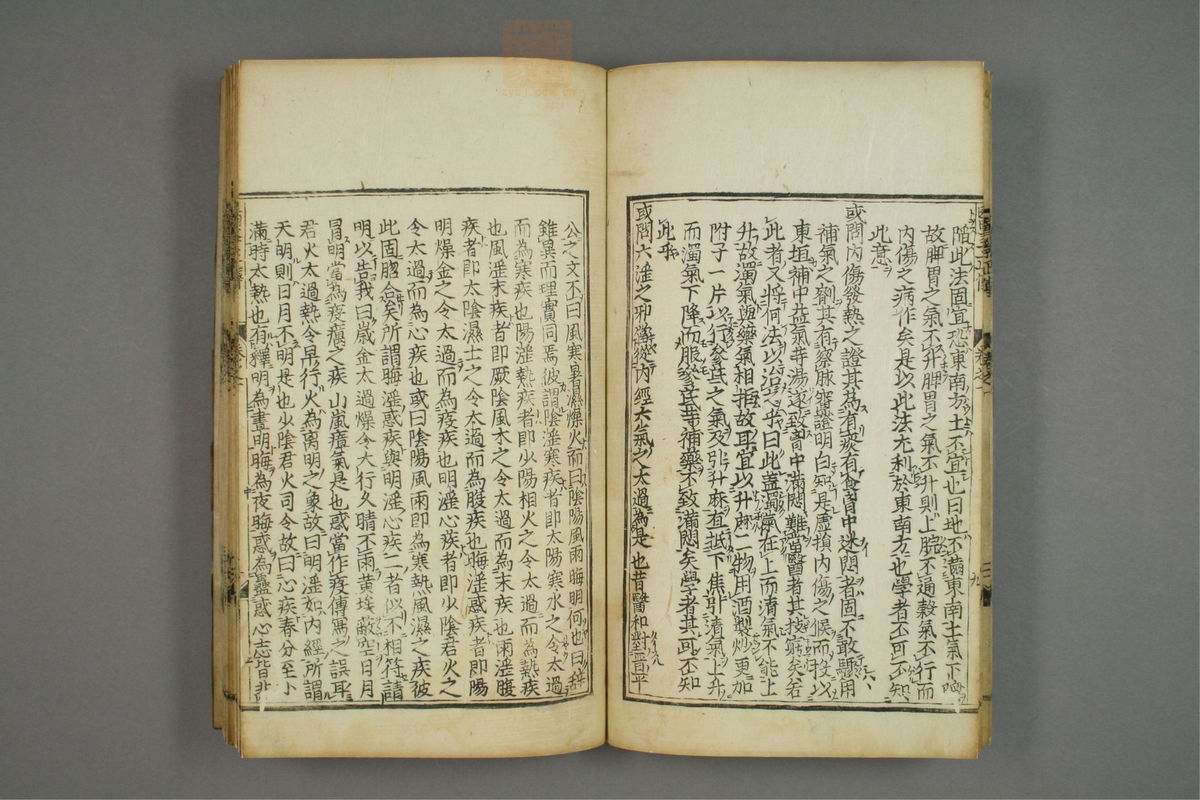 陷此法固宜恐東南坊土不宜也曰地不滿東南土氣下陷
故脾胃之氣不升脾胃之氣不升則上脘不通穀氣不行而
内傷之病作矣是以此法尤利於東南方也學者不可不知
此意
或問内傷發熱之證其為有痰有食胷中迷悶者固不敢驟用
補氣之劑其有察脉審證明白知是虛損内傷之候而投以
東垣補中益氣等湯遂致胷中滿悶難當醫者其技窮矣若
此者又將何法以治之乎曰此蓋濁氣在上而清氣不能上
升故濁氣與藥氣相拒故耳宜以升麻二物用酒製炒更加
附子一片以行參芪之氣及引升麻直抵下焦引清氣上升
而濁氣下降而服參芪等補藥不致滿悶矣學者其可不知
此乎
或問六淫之邪猶從内經六氣之太過為是也昔醫和對晋平
公之文不曰風寒暑濕燥火而曰陰陽風雨晦明何也曰辞
雖異而理實同焉彼謂陰淫寒疾者即太陽寒水之令太過
而為寒疾也陽淫熱疾者即少陽相火之令太過而為熱疾
也風淫末疾者即厥陰風木之令太過而為末疾也雨淫腹
疾者即太陰濕土之令太過而為腹疾也晦淫惑疾者即陽
明燥金之令太過而為疫疾也明淫心疾者即少陰君火之
令太過而為心疾也或曰陰陽風雨即為寒熱風濕之疾彼
此固脗合矣所謂晦淫惑疾與明淫心疾二者似不相符請
明以告我曰歲金太過燥令大行久晴不雨黄埃蔽空日月
冒明當為疫癘之疾山嵐瘴氣是也惑當作疫傳寫之誤耳
君火太過熱令早行火為离明之象故曰明淫如内經所謂
天明則日月不明是也少陰君火司令故曰心疾春分至小
滿時太熱也有釋明為晝明晦為夜晦惑為蠱惑心志皆非